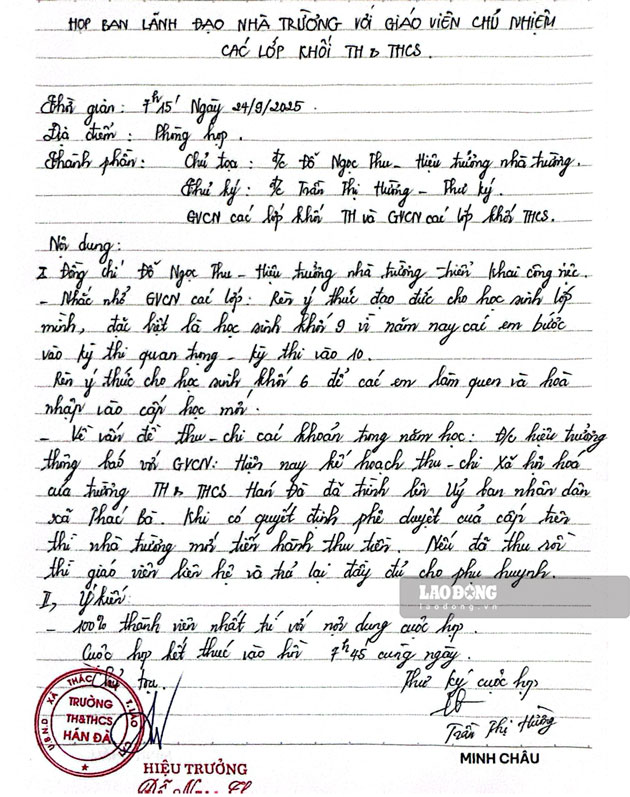 HỌP BAN LÃNH ĐẠO NHÀ TRƯỜNG VỚI GIÁO VIÊN CHỦ NHIỆM
CÁC LỚP KHỐI TH & THCS.
Thời gian: 7h15' Ngày 24/9/2025.
Địa điểm: Phòng họp.
Thành phần: Chủ tọa: đ/c Đỗ Ngọc Thu - Hiệu trưởng nhà trường.
Thư ký: đ/c Trần Thị Hường - Thư ký.
GVCN các lớp khối TH và GVCN các lớp khối THCS.
Nội dung:
I Đồng chí Đỗ Ngọc Thu - Hiệu trưởng nhà trường triển khai công việc.
- Nhắc nhở GVCN các lớp: Rèn ý thức đạo đức cho học sinh lớp
mình, đặc biệt là học sinh khối 9 vì năm nay các em bước
vào kỳ thi quan trọng - kỳ thi vào 10.
Rèn ý thức cho học sinh khối 6 để các em làm quen và hoà
nhập vào cấp học mới.
- Về vấn đề thu - chi các khoản trong năm học: Đ/c hiệu trưởng
thông báo với GVCN: Hiện nay kế hoạch thu - chi Xã hội hoá
của trường TH & THCS Hán Đà đã trình lên Uỷ ban nhân dân
xã Thác Bà. Khi có quyết định phê duyệt của cấp trên
thì nhà trường mới tiến hành thu tiền. Nếu đã thu rồi
thì giáo viên liên hệ và trả lại đầy đủ cho phụ huynh.
LAO ĐỘNG
laodong.vn
II, Ý kiến:
- 100% thành viên nhất trí với nội dung cuộc họp.
Cuộc họp kết thúc vào hồi 7h45 cùng ngày.
Chủ tọa. Thư ký cuộc họp
U.B.N.D XÃ THÁC BÀ T.LÀO CAI
TRƯỜNG
TH&THCS
HÁN ĐÀ
Trần Thị Hường
HIỆU TRƯỞNG
MINH CHÂU
Đỗ Ngọc Thu